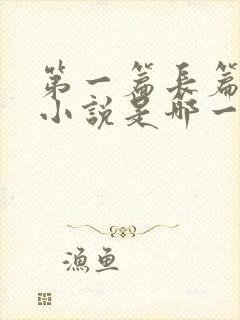 第一篇长篇
小说是那一
渔鱼